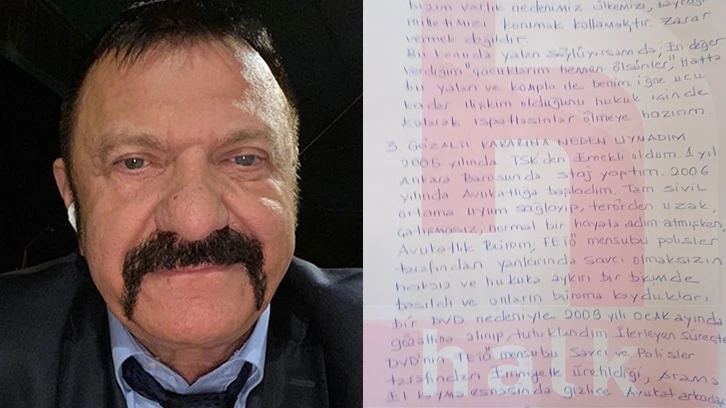 bizim varlık nedenimiz ülkemizi, bayrağı
milletimizi korumak kollamaktır. Zarar
vermek değildir.
Bu konuda yalan söylüyorsam da; En değer
verdiğim "çocuklarım hemen ölsünler", Hatta
bu yalan ve komplo ile benim iğne ucu
kadar ilişkim olduğunu hukuk içinde
kalarak ispatlasınlar ölmeye hazırım.
3. GÖZALTI KARARINA NEDEN UYMADIM
2005 yılında TSK'den Emekli oldum. 1 yıl
Ankara Barosunda staj yaptım. 2006
yılında Avukatlığa başladım. Tam sivil
ortama uyum sağlayıp, terörden uzak
çatışmasız, normal bir hayata adım atmışken,
Avukatlık Bürom, FETÖ mensubu polisler
tarafından yanlarında savcı olmaksızın
haksız ve hukuka aykırı bir biçimde
basıldı ve onların büroma koydukları
bir DVD nedeniyle 2009 yılı OCAK ayında
gözaltına alınıp, tutuklandım. İlerleyen süreçte
DVD'nin FETÖ mensubu Savcı ve Polisler
tarafından Emniyette üretildiği, Arama
El koyma esnasında gizlice Avukat arkadaş
h
halk